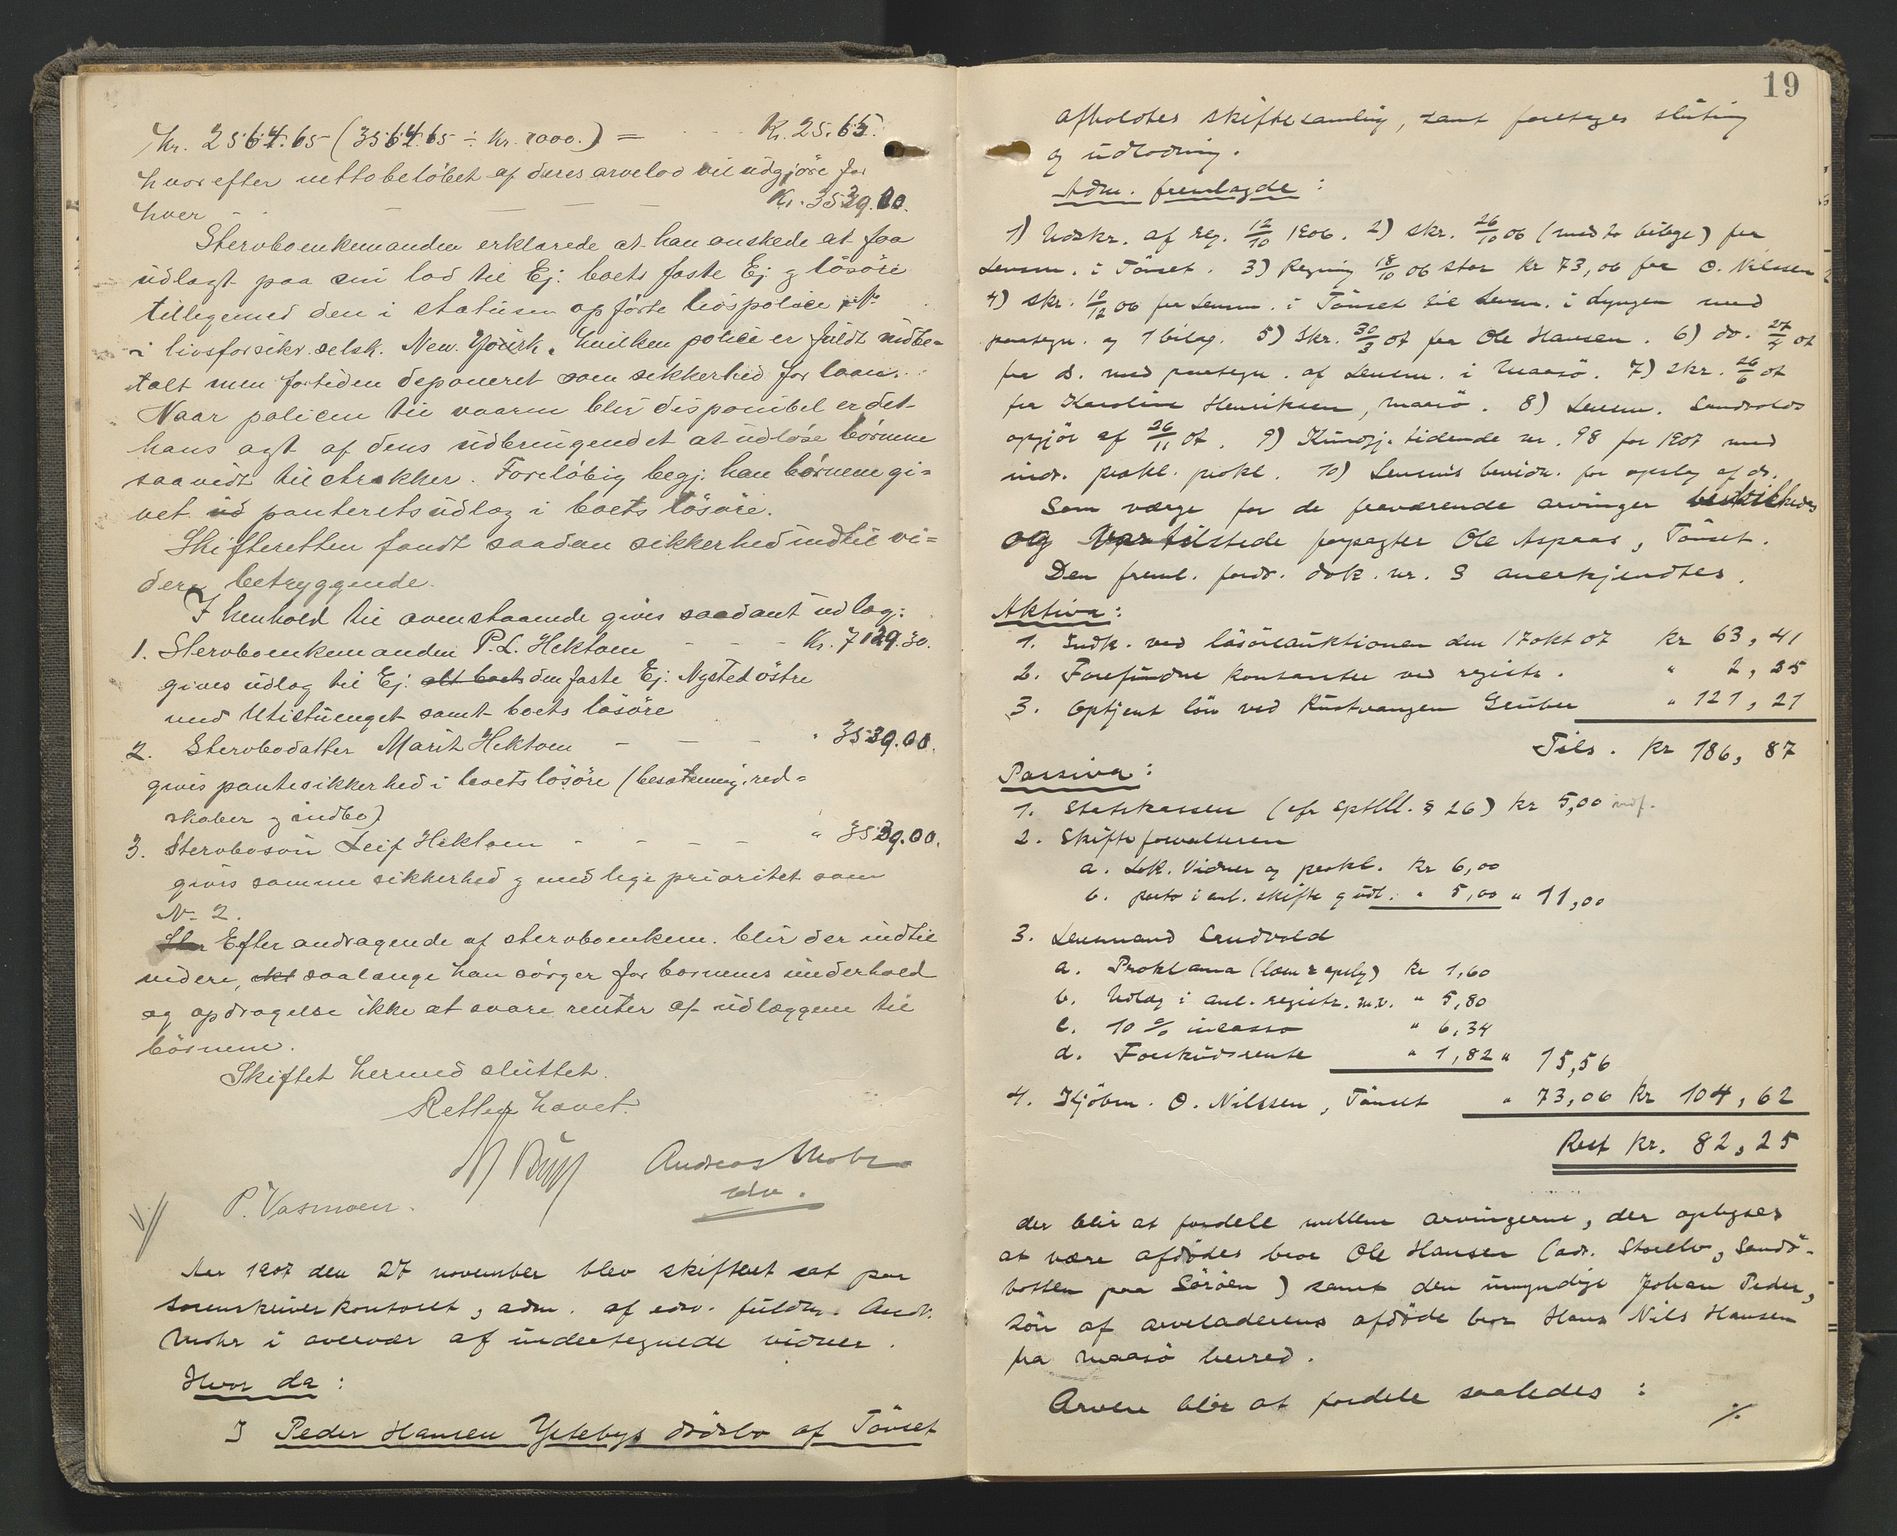 Kr. 2564.65 (3564.65 ÷ Kr. 1000.) = Kr. 25.65.
hvorefter nettobeløbet af deres arvelod vil udgjöre for
hver - - - - Kr. 3539.00.
Stervboenkemanden erklærede at han ønskede at faa
udlagt paa sin lod til Ej. boets faste Ej. g lösöre
tillegemed den i statusen opførte livspolice
i livsforsikr. selsk. New. Yourk, hvilken police er fuldt indbe-
talt men fortiden deponeret som sikkerhed for laan.
Naar policen til vaaren blir disponibel er det
hans agt af dens udbringendet at udløse børnene
saavidt til strækker. Foreløbig begj. han børnene gi-
vet panteretsudlæg i boets lösöre.
Skifteretten fandt saadan sikkerhed indtil vi-
dere betryggende.
I henhold til ovenstaaende gives saadant udlæg:
1. Stervboenkemanden P. L. Hektoen - - - Kr. 7129.30.
gives udlæg til Ej. alt boets den faste Ej. Nysted östre
med Utistuenget samt boets lösöre
2. Stervbodatter Marit Hektoen - - - " 3539.00.
gives pantesikkerhed i boets lösöre (besætning, red-
skaber g indbo)
3. Stervbosön Leif Hektoen - - - - " 3539.00.
gives samme sikkerhed g med lige prioritet som
No 2.
Efter andragende af stervboenkem. blir der indtil
videre, saalænge han sörger for børnenes underhold
og opdragelse ikke at svare renter af udlæggene til
börnene.
Skiftet hermed sluttet.
Retten hævet.
Andreas Mohr
edv.
P. Vasmoen.
Aar 1907 den 27 november blev skifteret sat paa
sorenskriverkontoret, adm. af edv. fuldm. Andr.
Mohr i overvær af undertegnede vidner.
Hvor da:
I Peder Hansen Ytebys dödsbo af Tönset
19
afholdtes skiftesamling, samt foretages slutning
og udlodning.
Adm. fremlagde:
1) Udskr. af reg. 12/10 1906. 2) skr. 26/10 06 (med to bilage) fra
Lensm. i Tönset. 3) Regning 18/10 06 stor kr 73,06 fra O. Nilssen
4) skr. 10/12 06 fra Lensm. i Tönset til Lensm. i Lyngen med
paategn. og 1 bilag. 5) Skr. 30/3 07 fra Ole Hansen. 6) do. 27/4 07
fra d. med paategn. af Lensm. i Maasö. 7) skr. 26/6 07
fra Karoline Henriksen, Maasö. 8) Lensm. Sandvolds
opgjör af 26/11 07. 9) Kundgj. tidende nr. 98 for 1907 med
indr. prokl. prokl. 10) Lensm's bevidn. for opslag af ds.
Som værge for de fraværende arvinger beskikkedes
og var tilstede forpagter Ole Aspaas, Tönset.
Den freml. fordr. dok. nr. 3 anerkjendtes.
Aktiva:
1. Indk. ved lösöreauktionen den 17 okt 07 kr 63,41
2. Forefundne kontanter ved registr. " 2,25
3. Optjent lön ved Rustvangen Gruber " 121,21
Tils. kr 186,87
Passiva:
1. Statskassen (cfr sptll. § 26) kr 5,00 indf.
2. Skifteforvalteren
a. Dok. Vidner og prokl. kr 6,00
b. porto i anl. skifte g udl. " 5,00 " 11,00
3. Lensmand Sandvold
a. Proklama (læsn & opslg) kr 1,60
b. Udlæg i anl. registr. m.v. " 5,80
c. 10 % incasso " 6,34
d. Forskudsrente " 1,82 " 15,56
4. Kjöbm. O. Nilssen, Tönset " 73,06 kr 104,62
Rest kr. 82,25
der blir at fordele mellem arvingerne, der oplyses
at være afdödes bror Ole Hansen (adr. Storelv, Sandö-
botten paa Söröen) samt den umyndige Johan Peder,
sön af arveladerens afdöde bror Hans Nils Hansen
fra Maasö herred.
Arven blir at fordele saaledes:
./.